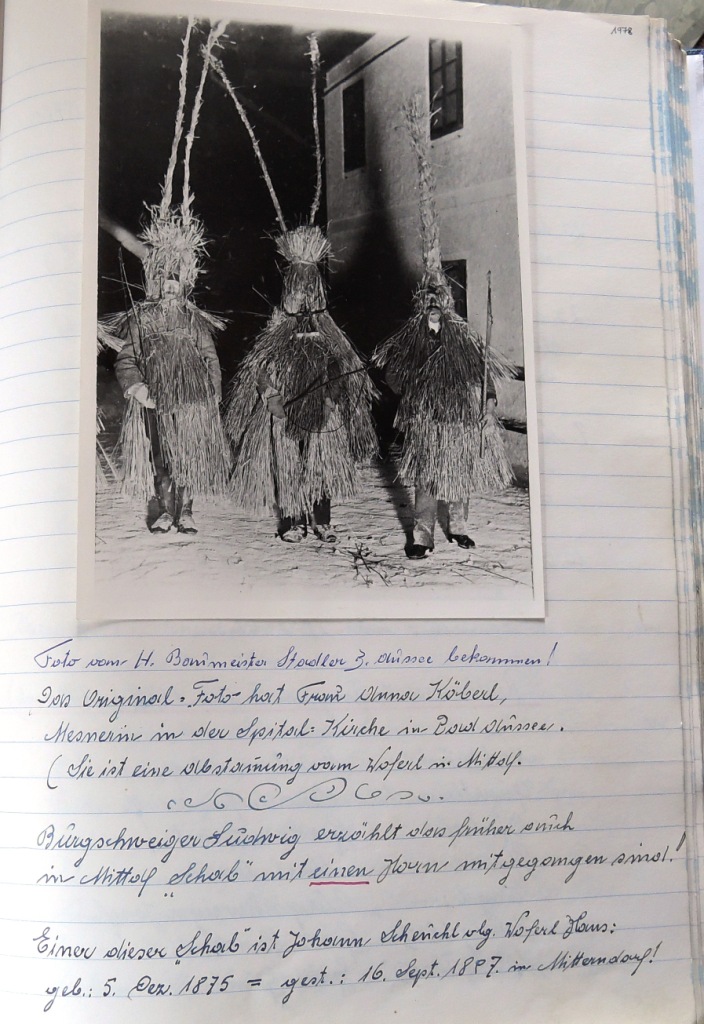 1978
Foto vom H. Baumeister Stadler B. Aussee bekommen!
Das Original=Foto hat Frau Anna Köberl,
Mesnerin in der Spital=Kirche in Bad Aussee.
(Sie ist eine Abstamung vom Woferl in Mittdf.
Burgschweiger Ludwig erzählt das früher auch
in Mittdf „Schab" mit einen Horn mitgegangen sind!
Einer dieser „Schab" ist Johann Scheuchl vlg. Woferl Hans:
geb.: 5. Dez. 1875 = gest.: 16. Sept. in Mitterndorf!